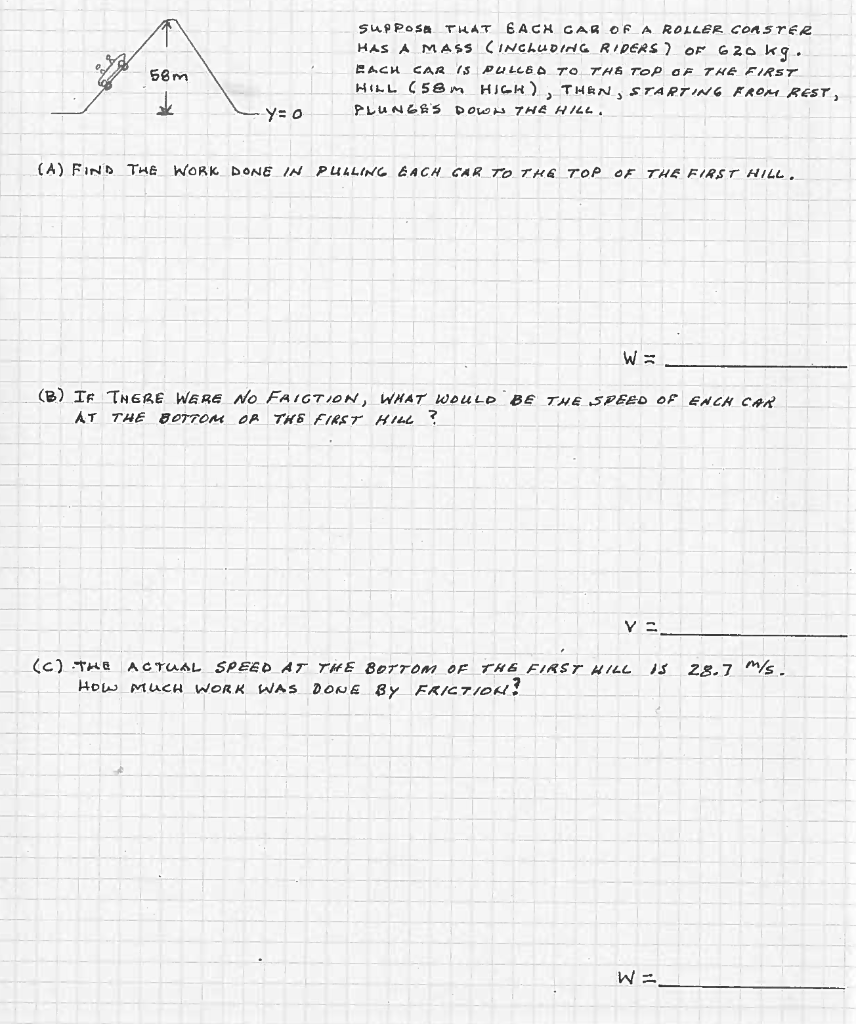 SUPPOSE THAT EACH CAR OF A ROLLER COASTER
HAS A MASS (INCLUDING RIDERS) OF 620 kg.
EACH CAR IS PULLED TO THE TOP OF THE FIRST
HILL (58m HIGH), THEN, STARTING FROM REST,
PLUNGES DOWN THE HILL.
58m
Y=0
(A) FIND THE WORK DONE IN PULLING EACH CAR TO THE TOP OF THE FIRST HILL.
W =
(B) IF THERE WERE NO FRICTION, WHAT WOULD BE THE SPEED OF EACH CAR
AT THE BOTTOM OF THE FIRST HILL?
V =
(C) THE ACTUAL SPEED AT THE BOTTOM OF THE FIRST HILL IS 28.7 m/s.
HOW MUCH WORK WAS DONE BY FRICTION?
W =